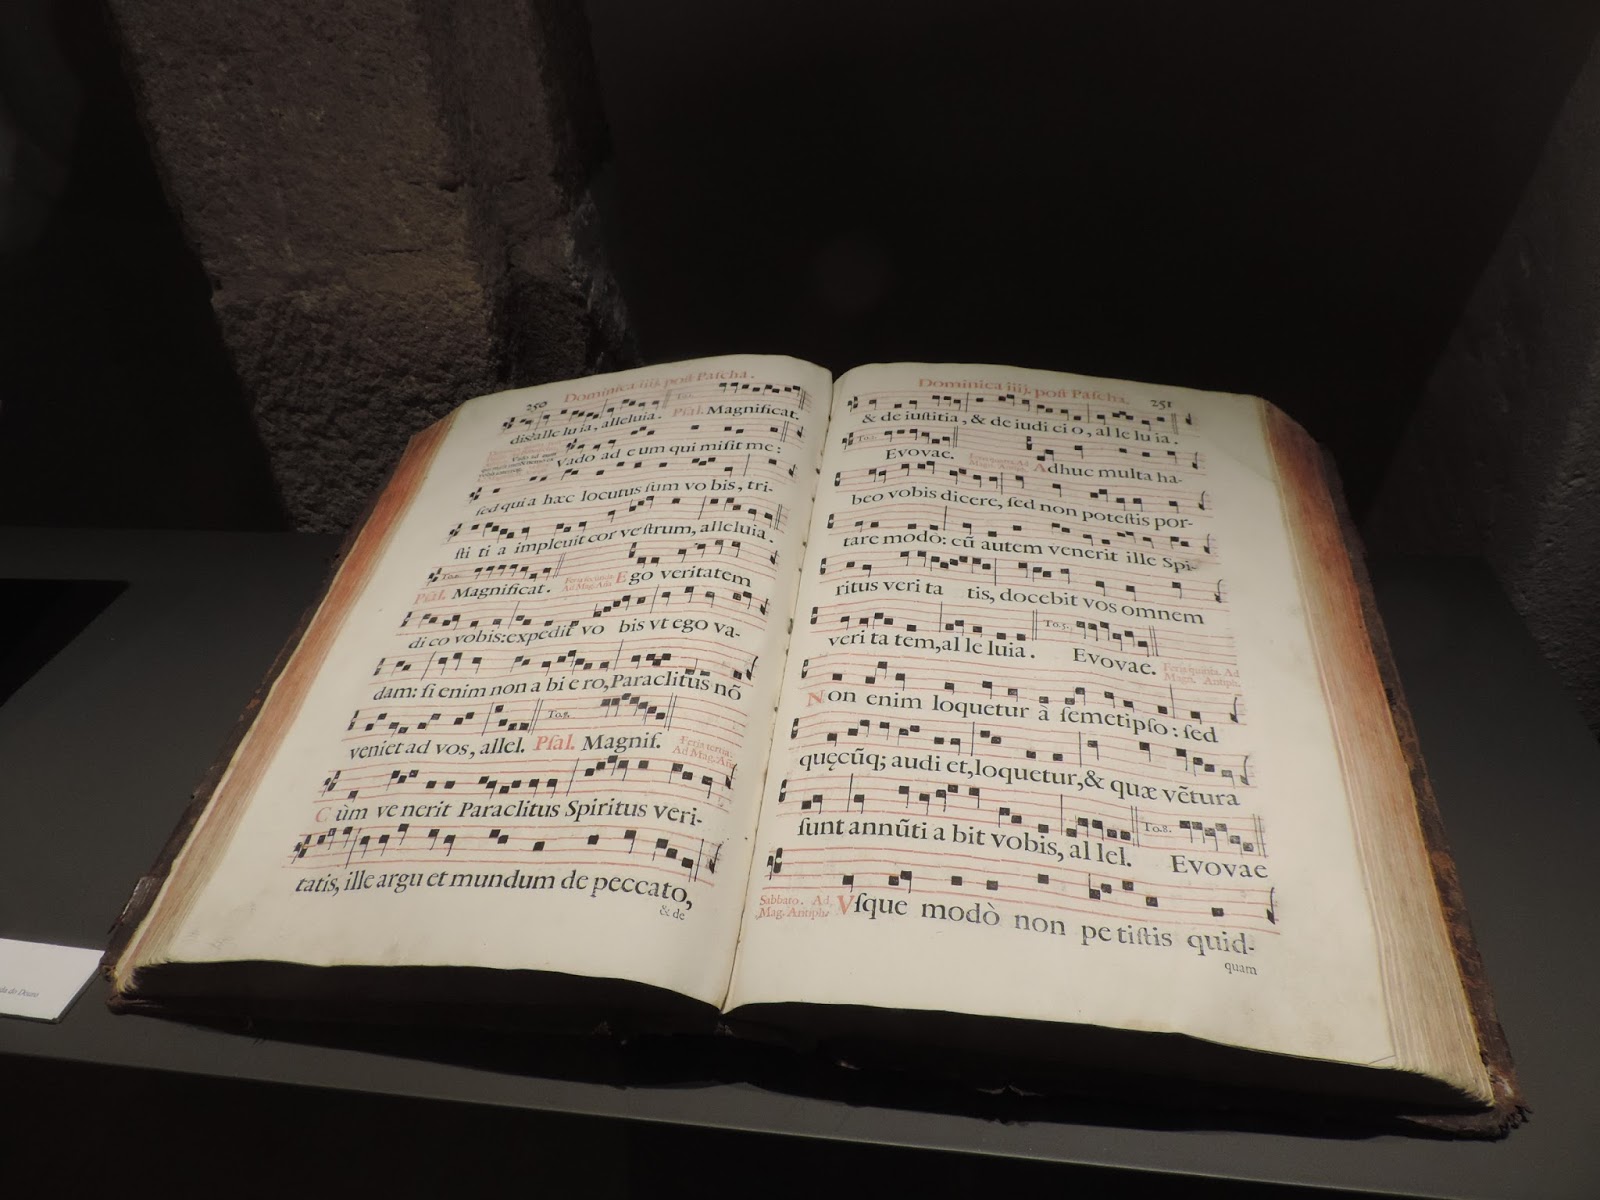 250
Dominica iiij. post Pascha.
To.1.
dis: alle lu ia, alleluia. Psal. Magnificat.
Vado ad eum qui misit me:
sed qui a hæc locutus sum vo bis, tri-
sti ti a impleuit cor vestrum, alleluia.
To.2.
Feria secunda
Ad Mag. Aña
Psal. Magnificat. Ego veritatem
di co vobis: expedit vo bis vt ego va-
dam: si enim non a bi e ro, Paraclitus nõ
veniet ad vos, allel. Psal. Magnif.
Feria tertia.
Ad Mag. Aña
Cùm ve nerit Paraclitus Spiritus veri-
tatis, ille argu et mundum de peccato,
& de
Dominica iiij. post Pascha.
251
& de iustitia, & de iudi ci o, al le lu ia.
Evovae. Adhuc multa ha-
beo vobis dicere, sed non potestis por-
tare modò: cũ autem venerit ille Spi-
ritus veri ta tis, docebit vos omnem
To.5.
veri ta tem, al le luia. Evovae.
Feria quinta. Ad
Magn. Antiph.
Non enim loquetur â semetipso: sed
quęcũq; audi et, loquetur, & quæ vẽtura
To.8.
sunt annũti a bit vobis, al lel. Evovae
Sabbato. Ad
Mag. Antiph.
Vsque modò non pe tistis quid-
quam
do Douro